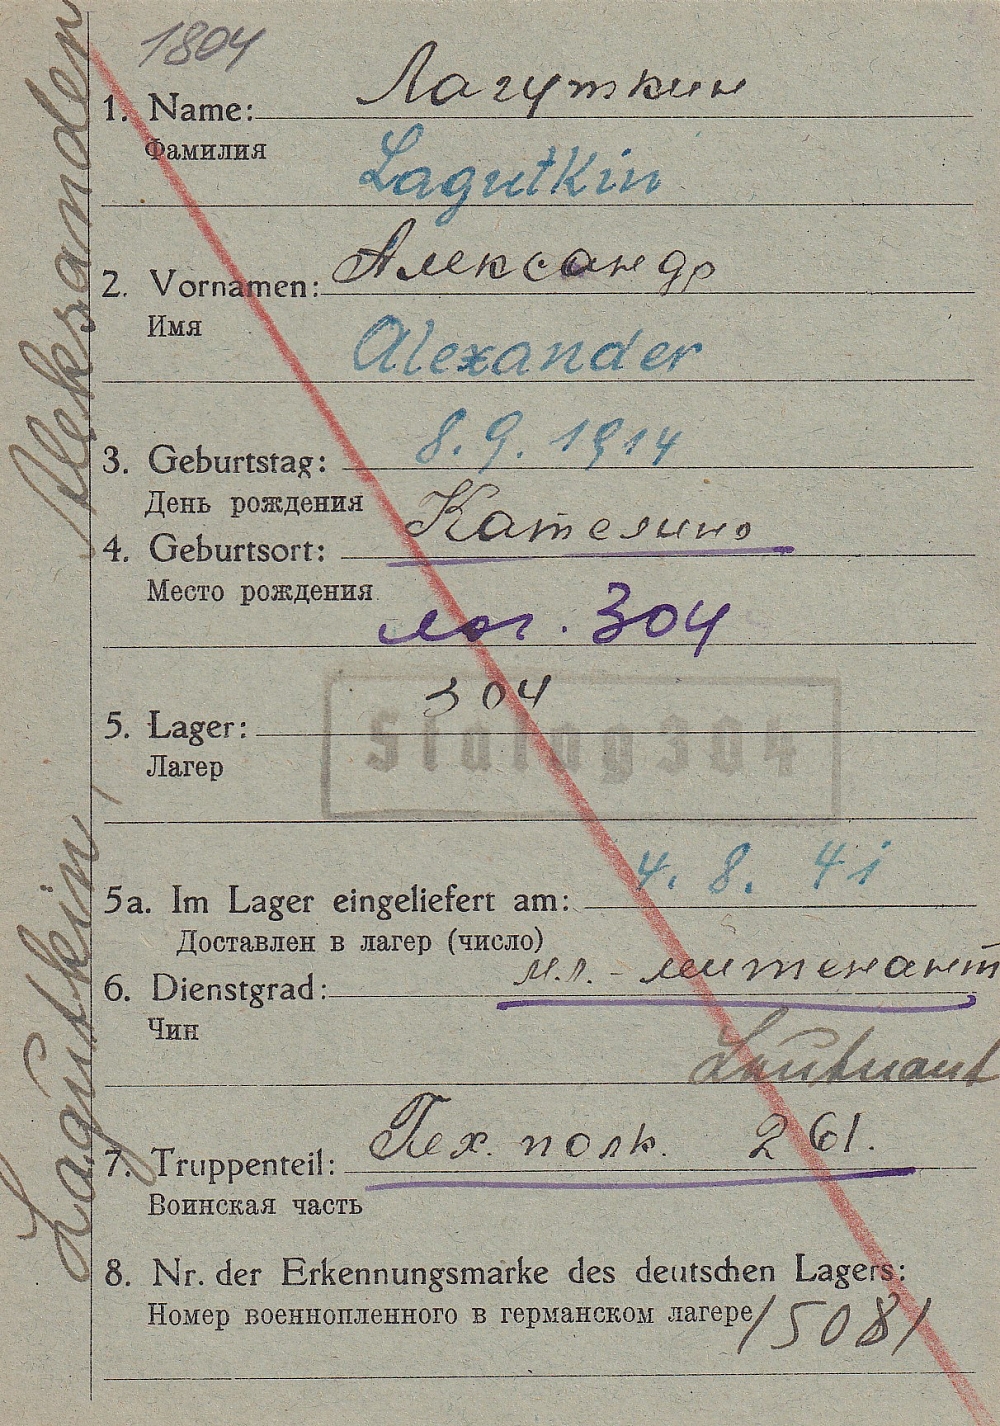 1804
1. Name: Лагуткин
Фамилия
Lagutkin
2. Vornamen: Александр
Имя
Alexander
3. Geburtstag: 8.9.1914
День рождения
4. Geburtsort: Кателино
Место рождения
лаг. 304
304
5. Lager: Stalag 304
Лагер
5a. Im Lager eingeliefert am: 4. 8. 41
Доставлен в лагер (число)
6. Dienstgrad: мл. - лейтенант
Чин
Leutnant
7. Truppenteil: Пех. полк. 261.
Воинская часть
8. Nr. der Erkennungsmarke des deutschen Lagers:
Номер военнопленного в германском лагере 15081
Lagutkin, Aleksander